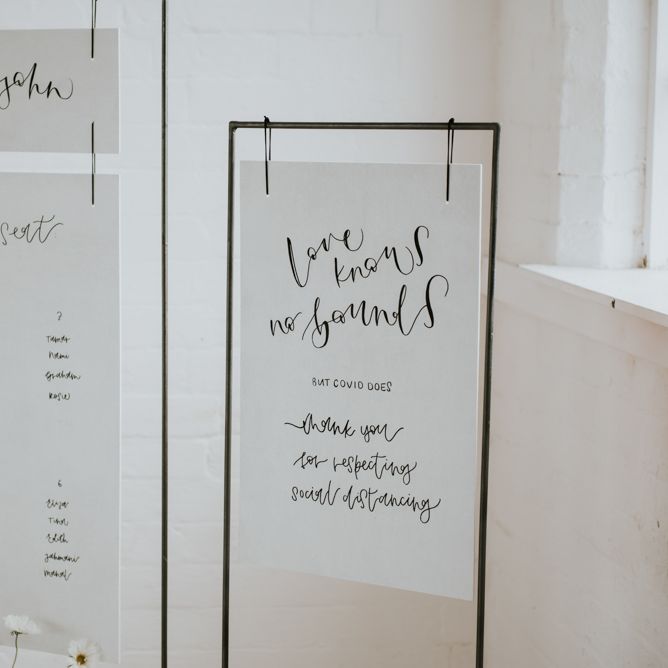 john
seat
3
Tamar
Nami
Graham
Rosie
6
Eliza
Tina
Edith
love
knows
no bounds
BUT COVID DOES
thank you
for respecting
social distancing